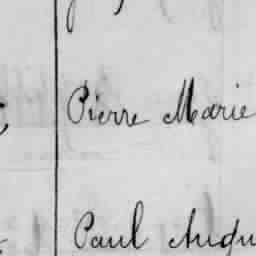 Pierre Marie
Paul Augu